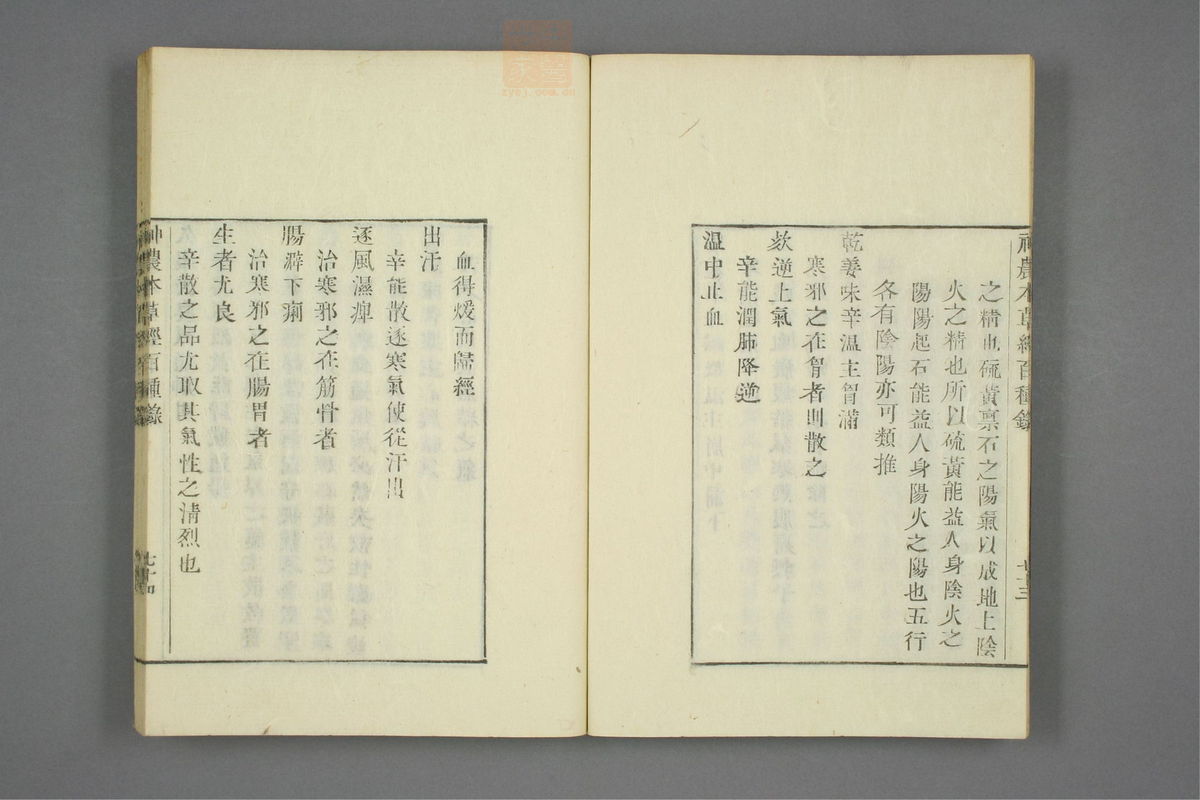 神農本草經百種錄
七十三
之精也硫黃稟石之陽氣以成地上陰
火之精也所以硫黃能益人身陰火之
陽陽起石能益人身陽火之陽也五行
各有陰陽亦可類推
乾姜味辛溫主胷滿
寒邪之在胷者則散之
欬逆上氣
辛能潤肺降逆
温中止血
血得煖而歸經
出汗
辛能散逐寒氣使從汗出
逐風濕痺
治寒邪之在筋骨者
腸澼下痢
治寒邪之在腸胃者
生者尤良
辛散之品尤取其氣性之清烈也
神農本草經百種錄
七十四
zyej.com.cn